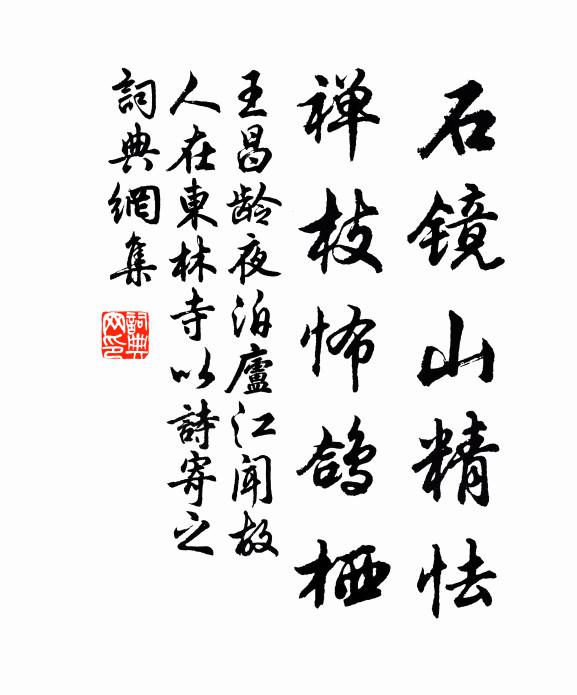 石镜山精怯
禅枝怖鸽栖
王昌龄夜泊廬江聞故
人在東林寺以詩寄之
詞典網集
詞典网印